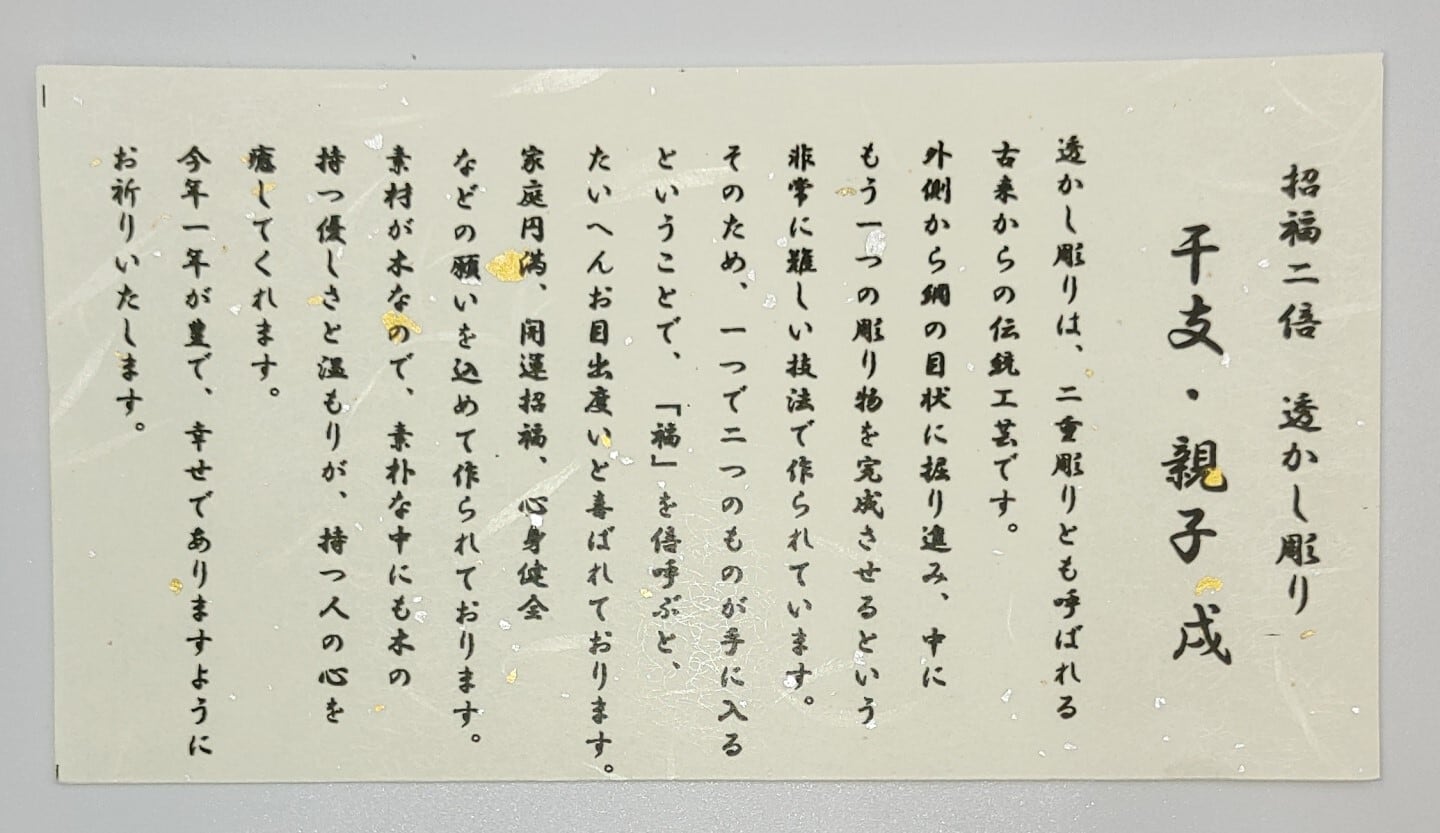 招福二倍　透かし彫り
干支・親子戌
透かし彫りは、二重彫りとも呼ばれる
古来からの伝統工芸です。
外側から網の目状に掘り進み、中に
もう一つの彫り物を完成させるという
非常に難しい技法で作られています。
そのため、一つで二つのものが手に入る
ということで、「福」を倍呼ぶと、
たいへんお目出度いと喜ばれております。
家庭円満、開運招福、心身健全
などの願いを込めて作られております。
素材が木なので、素朴な中にも木の
持つ優しさと温もりが、持つ人の心を
癒してくれます。
今年一年が豊で、幸せでありますように
お祈りいたします。